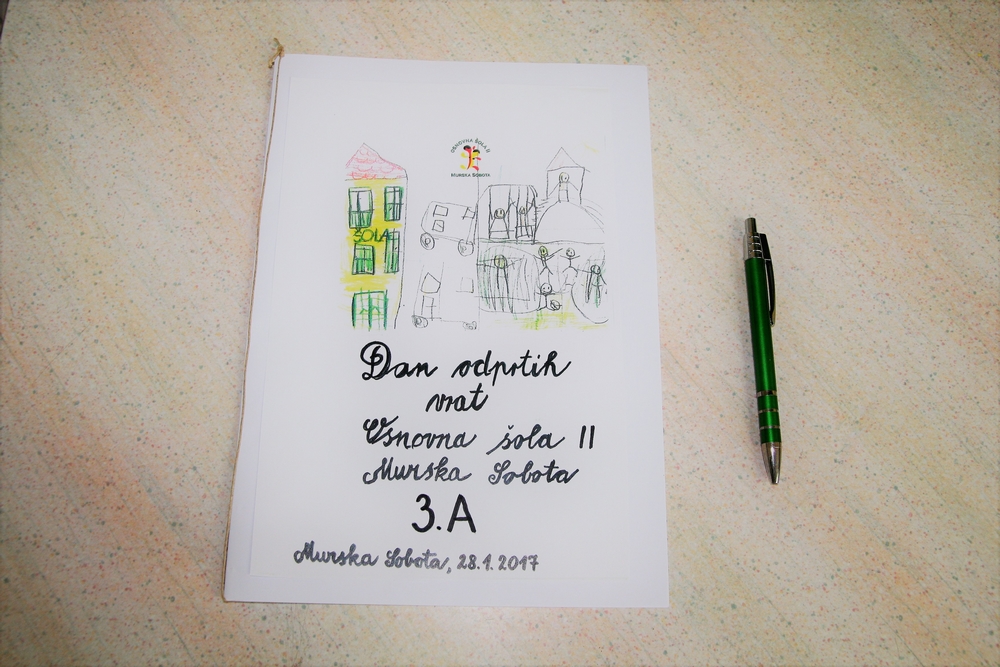 OSNOVNA ŠOLA II
MURSKA SOBOTA
ŠOLA
Dan odprtih
vrat
Osnovna šola II
Murska Sobota
3.A
Murska Sobota, 28.1.2017